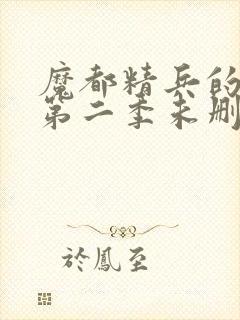 魔都精兵的
第二季未删
於鳳至